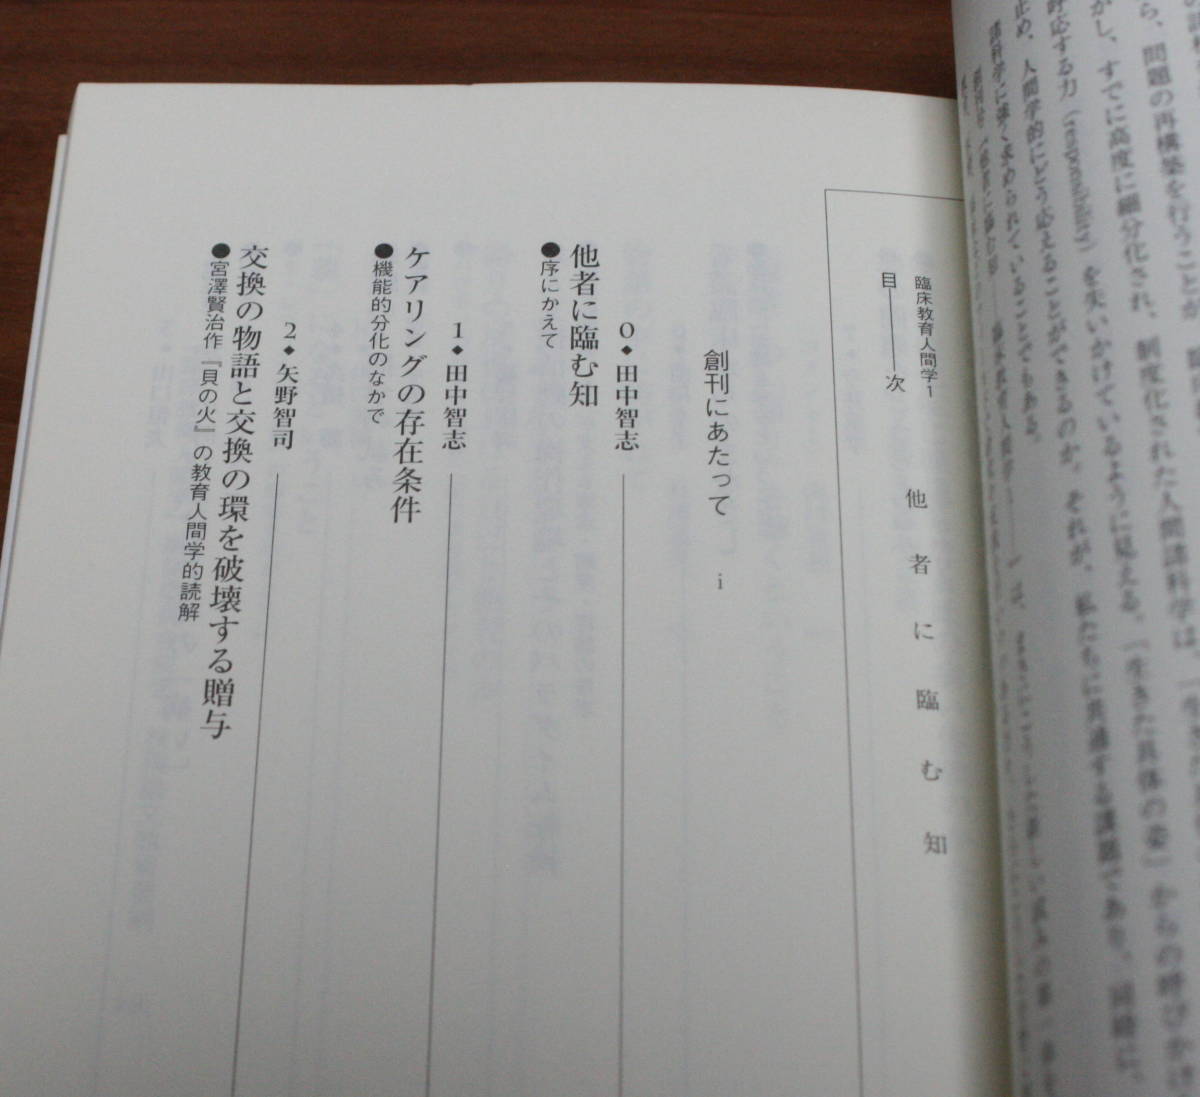 ら、問題の再構築を行うことが
がし、すでに高度に細分化され、制度化された人間諸科学は、「生き
呼応する力(responsibility)を失いかけているように見える。「生きた具体の姿」からの呼びかけ
止め、人間学的にどう応えることができるのか。それが、私たちに共通する課題であり、同時に、
諸科学に強く求められていることでもある。
臨床教育人間学1
目―――次
他者に臨む知
創刊にあたって i
0◆田中智志
他者に臨む知
●序にかえて
1◆田中智志
ケアリングの存在条件
●機能的分化のなかで
2◆矢野智司
交換の物語と交換の環を破壊する贈与
●宮澤賢治作『貝の火』の教育人間学的読解